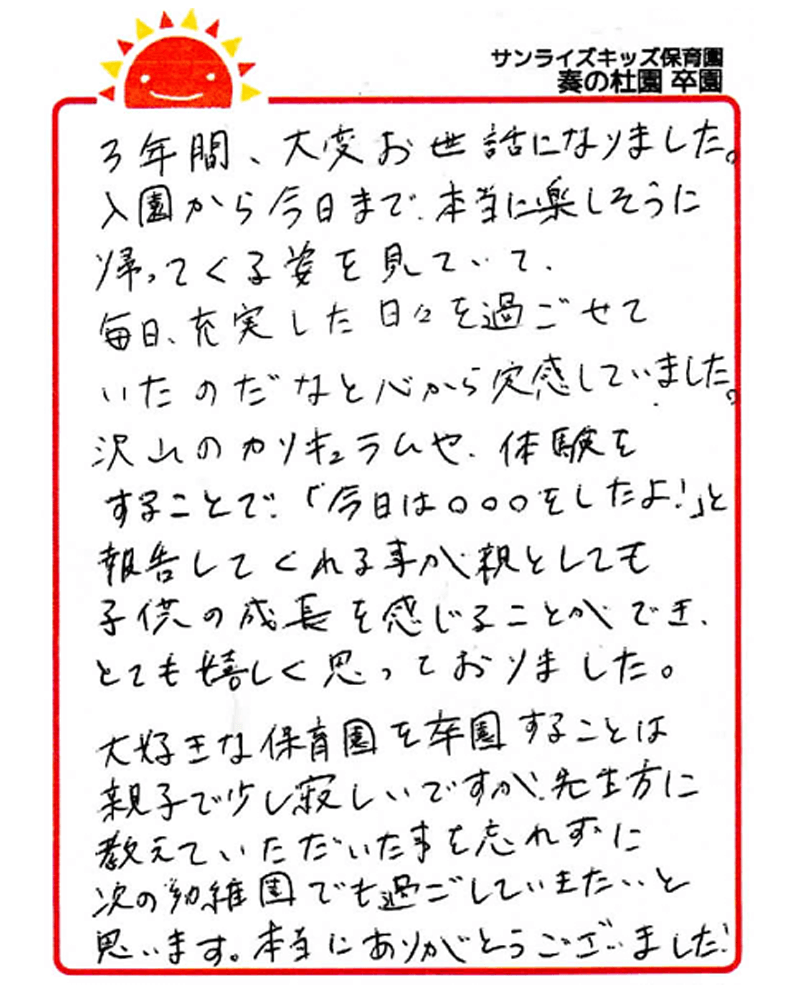 サンライズキッズ保育園
奏の杜園 卒園
3年間、大変お世話になりました。
入園から今日まで、本当に楽しそうに
帰ってくる姿を見ていて、
毎日、充実した日々を過ごせて
いたのだなと心から実感していました。
沢山のカリキュラムや、体験を
することで、「今日は〇〇〇をしたよ!」と
報告してくれる事が親としても
子供の成長を感じることができ、
とても嬉しく思っておりました。
大好きな保育園を卒園することは
親子で少し寂しいですが、先生方に
教えていただいた事を忘れずに
次の幼稚園でも過ごしていきたいと
思います。本当にありがとうございました!